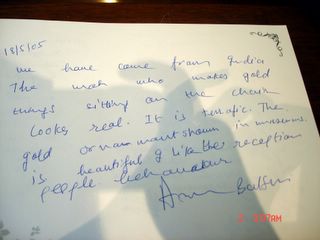 18/5/05
we have come from India
The man who makes gold
things sitting on the chair
looks real. It is terrific. The
gold ornamant shown in museums.
is beautiful I like the reception
people behavaiour